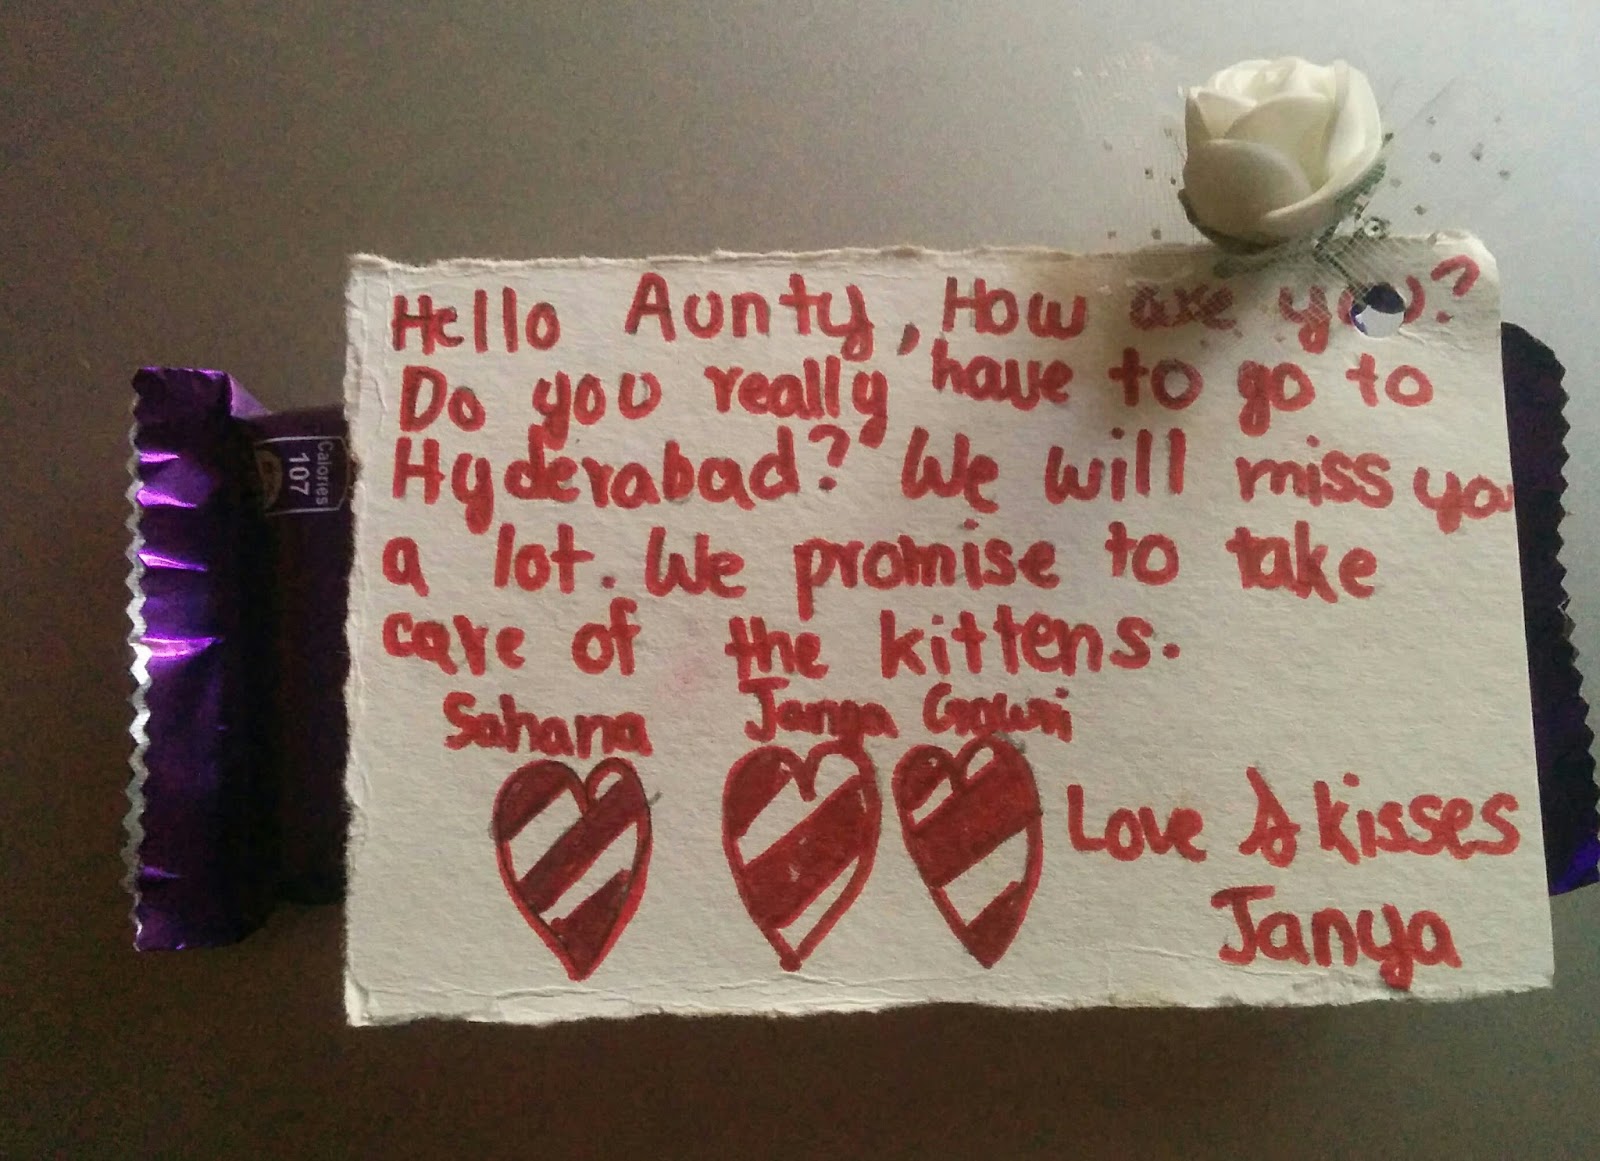 Hello Aunty, How are you?
Do you really have to go to
Hyderabad? We will miss you
a lot. We promise to take
care of the kittens.
Sahana Janya Gowri
Love & kisses
Janya
Calories
107